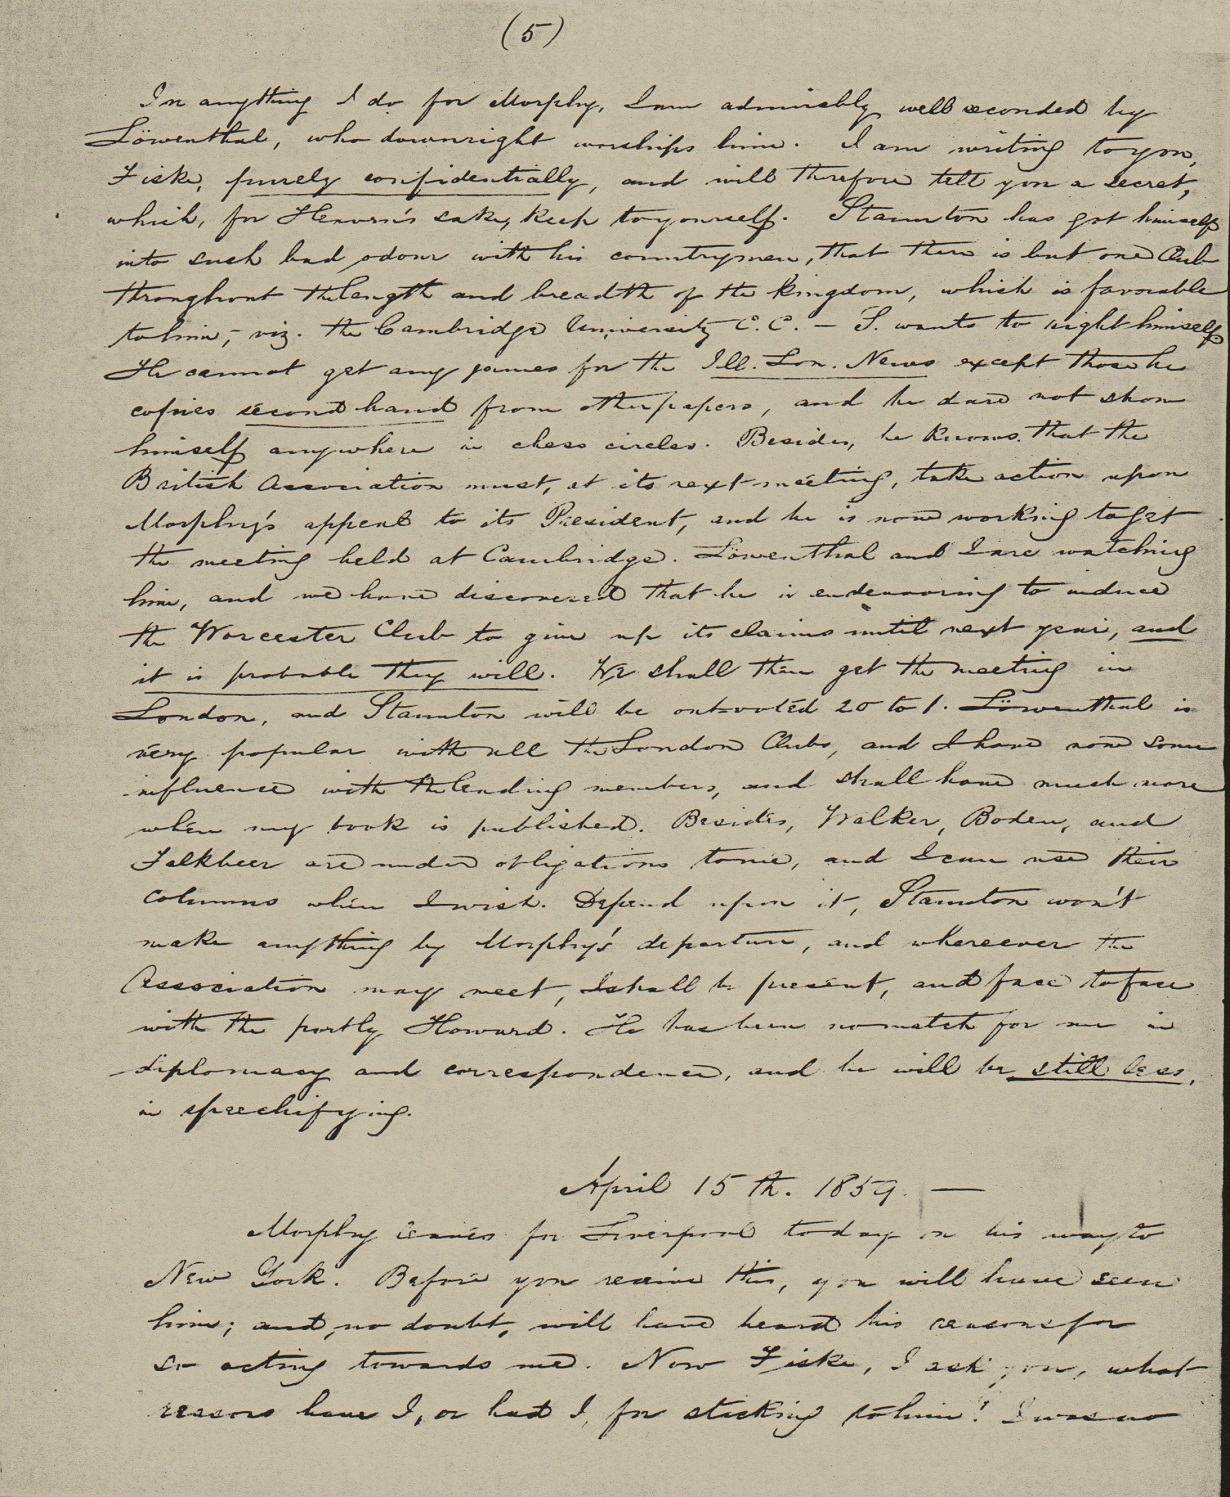 (5)
In anything I do for Morphy, I am admirably well seconded by
Löwenthal, who downright worships him. I am writing to you,
Fiske, purely confidentially, and will therefore tell you a secret,
which, for Heaven's sake, keep to yourself. Staunton has got himself
into such bad odour with his countrymen, that there is but one Club
throughout the length and breadth of the kingdom, which is favorable
to him, – viz. the Cambridge University C.C. – S. wants to right himself
He cannot get any games for the Ill. Lon. News except those he
copies second hand from other papers, and he dare not show
himself anywhere in chess circles. Besides, he knows that the
British Association must, at its next meeting, take action upon
Morphy's appeal to its President, and he is now working to get
the meeting held at Cambridge. Löwenthal and I are watching
him, and we have discovered that he is endeavoring to induce
the Worcester Club to give up its claims until next year, and
it is probable they will. We shall then get the meeting in
London, and Staunton will be outvoted 20 to 1. Löwenthal is
very popular with all the London Clubs, and I have now some
influence with the leading members, and shall have much more
when my book is published. Besides, Walker, Boden, and
Falkbeer are under obligations to me, and I can use their
columns when I wish. Depend upon it, Staunton won't
make anything by Morphy's departure, and whereever the
Association may meet, I shall be present, and face to face
with the portly Howard. He has been no match for me in
diplomacy and correspondence, and he will be still less,
in speechifying.
April 15th. 1859. —
Morphy leaves for Liverpool today on his way to
New York. Before you receive this, you will have seen
him; and, no doubt, will have heard his reasons for
so acting towards me. Now Fiske, I ask you, what
reasons have I, or had I, for sticking to him? I was no